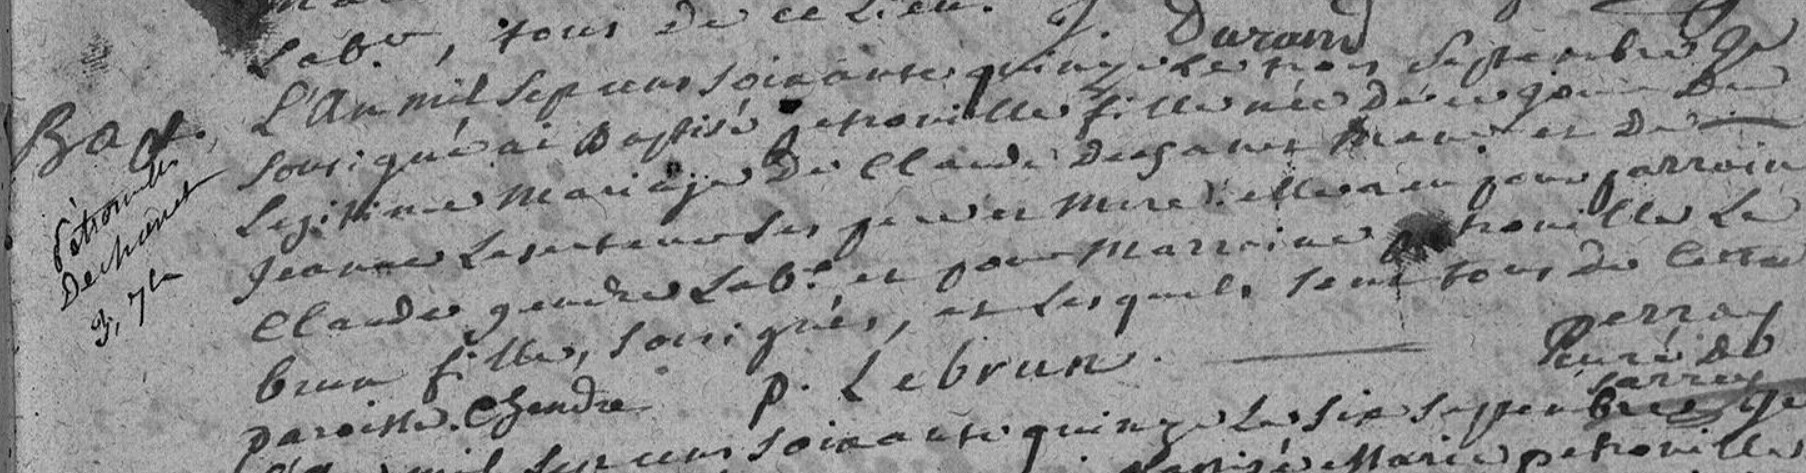 Lab.r, tous de ce Lieu. J. Durand
Bap.
Pétronille
Dechanet
3, 7bre
L'An mil sept cens soixante quinze Le trois septembre Je
sousigné ai Baptisé petronille fille née de ce jour Du
Legitime Mariage De Claude Dechanet Man. et De
Jeanne ses pere et Mere. elle a eu pour parrain
Claude gendre Lab.r et pour Marraine petronille Le
brun fille, sousignés, et Lesquels sont tous de Cette
paroisse. C gendre p. Lebrun. perrot
Curé de
Sarrey
L'An mil sept cens soixante quinze Le six septembre Je
Baptisé Marie petronille